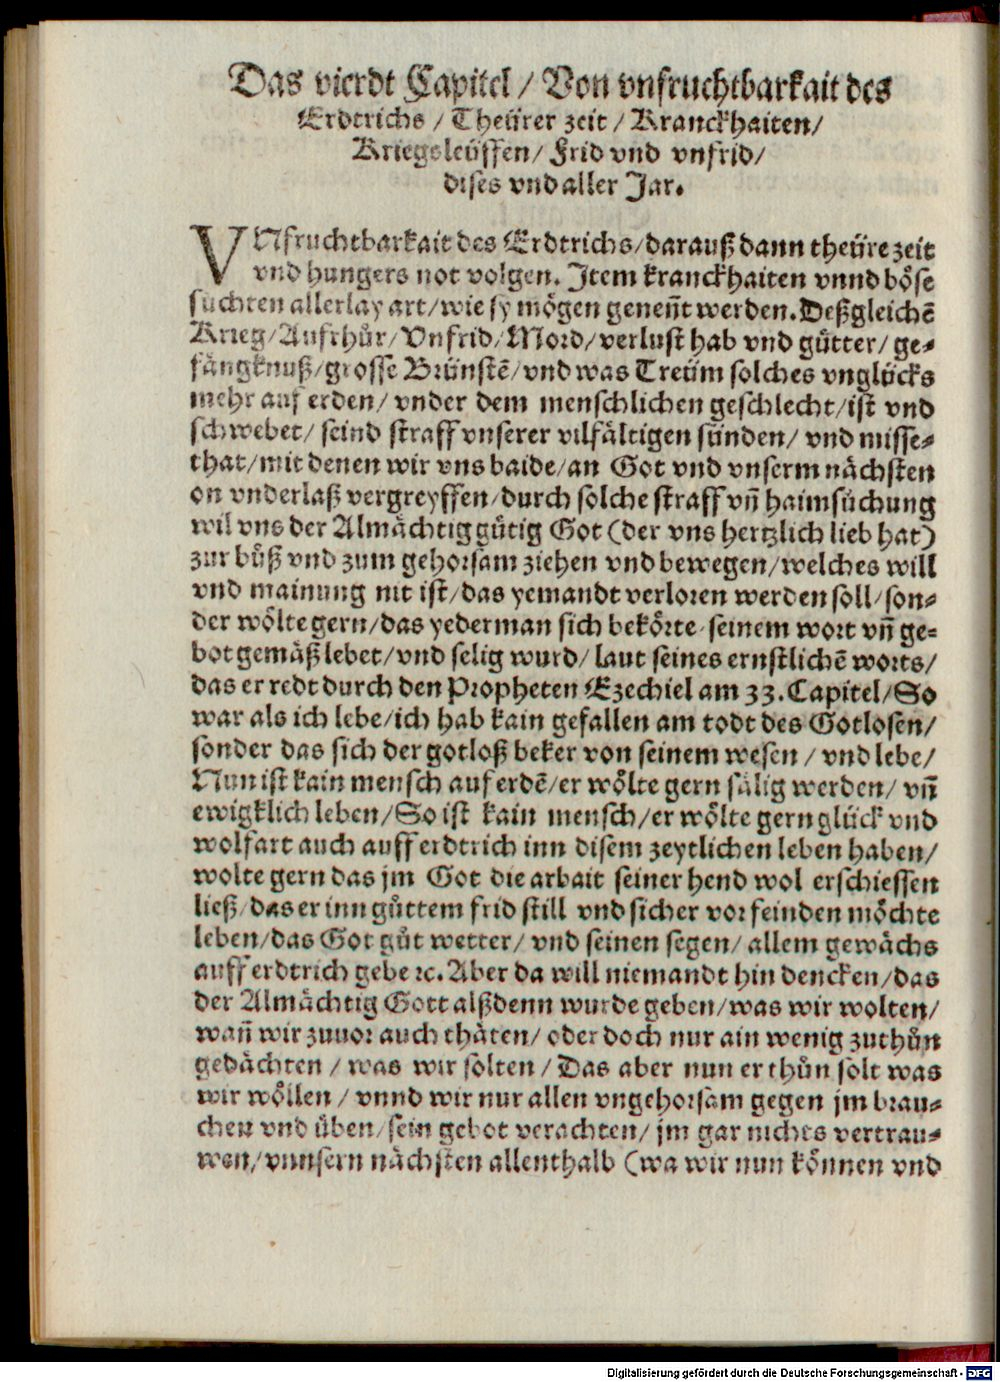 Das vierdt Capitel / Von vnfruchtbarkait des
Erdtrichs / Theürer zeit / Kranckhaiten /
Kriegsleüffen / Frid vnd vnfrid /
dises vnd aller Jar.
VNfruchtbarkait des Erdtrichs / darauß dann theüre zeit
vnd hungers not volgen. Jtem kranckhaiten vnnd böse
suchten allerlay art / wie sy mögen geneñt werden. Deßgleichē
Krieg / Aufrhůr / Vnfrid / Mord / verlust hab vnd gůtter / ge⸗
fängknuß / grosse Brünstē / vnd was Treüm solches vnglücks
mehr auf erden / vnder dem menschlichen geschlecht / ist vnd
schwebet / seind straff vnserer vilfältigen sünden / vnd misse⸗
that / mit denen wir vns baide / an Got vnd vnserm nächsten
on vnderlaß vergreyffen / durch solche straff vñ haimsůchung
wil vns der Almächtig gütig Got (der vns hertzlich lieb hat)
zur bůß vnd zum gehorsam ziehen vnd bewegen / welches will
vnd mainung nit ist / das yemandt verloren werden soll / son⸗
der wölte gern / das yederman sich bekörte / seinem wort vñ ge⸗
bot gemäß lebet / vnd selig wurd / laut seines ernstlichē worts /
das er redt durch den Propheten Ezechiel am 33. Capitel / So
war als ich lebe / ich hab kain gefallen am todt des Gotlosen /
sonder das sich der gotloß beker von seinem wesen / vnd lebe /
Nun ist kain mensch auf erdē / er wölte gern sälig werden / vñ
ewigklich leben / So ist kain mensch / er wölte gern glück vnd
wolfart auch auff erdtrich inn disem zeytlichen leben haben /
wolte gern das jm Got die arbait seiner hend wol erschiessen
ließ / das er inn gůttem frid still vnd sicher vor feinden möchte
leben / das Got gůt wetter / vnd seinen segen / allem gewächs
auff erdtrich gebe ꝛc. Aber da will niemandt hin dencken / das
der Almächtig Gott alßdenn wurde geben / was wir wolten /
wañ wir zuuor auch thäten / oder doch nur ain wenig zuthůn
gedächten / was wir solten / Das aber nun er thůn solt was
wir wöllen / vnnd wir nur allen vngehorsam gegen jm brau⸗
chen vnd üben / sein gebot verachten / jm gar nichts vertrau⸗
wen / vnnsern nächsten allenthalb (wa wir nun können vnd
Digitalisierung gefördert durch die Deutsche Forschungsgemeinschaft - DFG